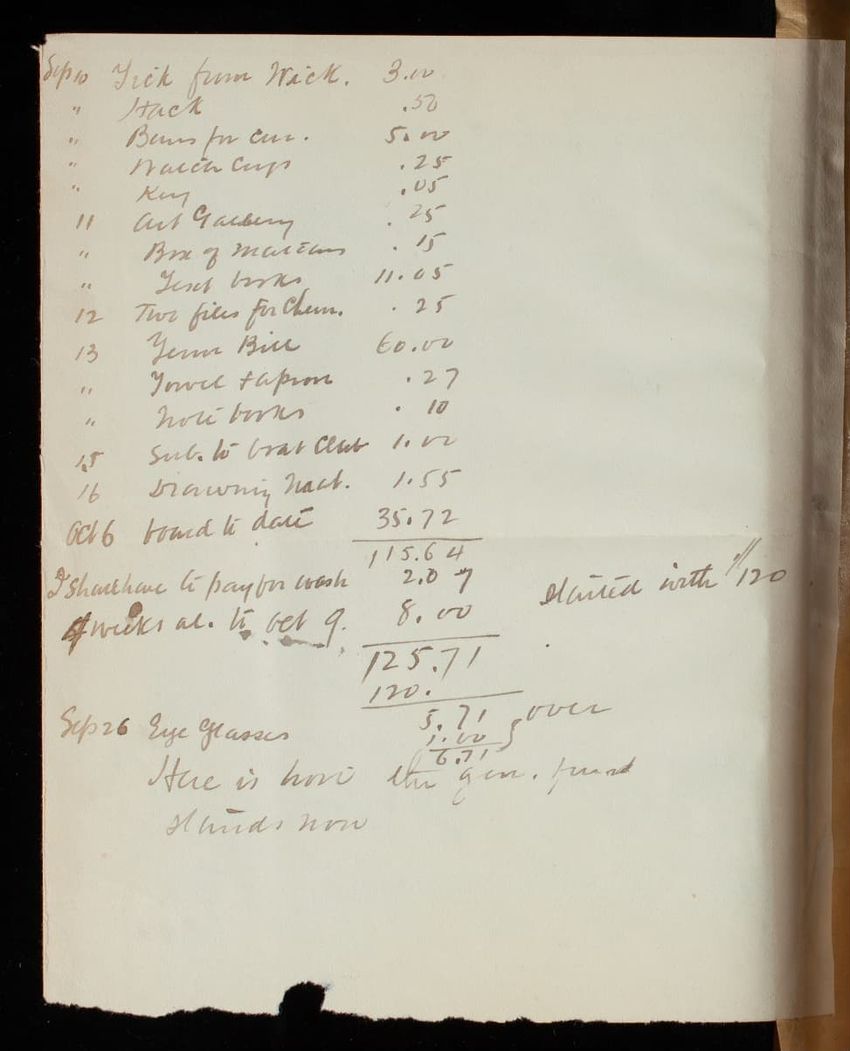 Sep 10 Tick from Wick. 3.00
" Hack .50
" for 5.00
" .25
" Key .05
11 Art Gallery .25
" Box of .15
" Text books 11.05
12 Two files for Chem. .25
13 Term Bill 60.00
" Towel + apron .27
" Note books .10
15 Sub. to boat Club 1.00
16 Drawing 1.55
Oct 6 board to date 35.72
115.64
I shall have to pay for wash 2.07
started with $120
4 weeks al. to Oct 9. 8.00
125.71
120.
5.71 over
Sep 26 Eye Glasses 1.00
6.71
Here is how the gen. fund
stands now